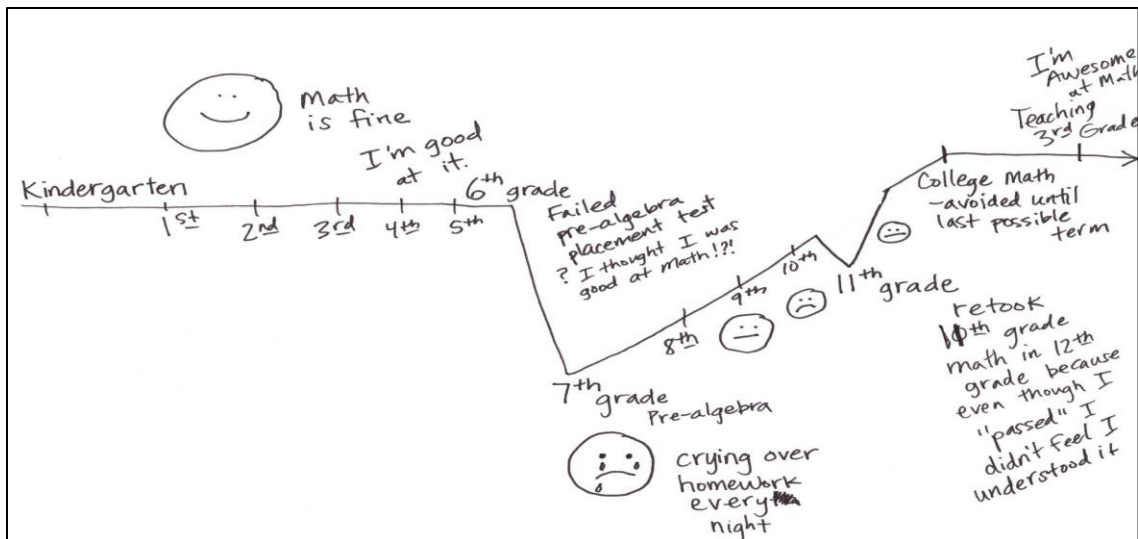 Math
is fine
I'm good
at it.
Kindergarten
1st
2nd
3rd
4th
5th
6th grade
Failed
pre-algebra
placement test
? I thought I was
good at math!?!
7th
grade
Pre-algebra
crying over
homework
every
night
8th
9th
10th
11th
grade
retook
grade
math in 12th
grade because
even though I
"passed" I
didn't feel I
understood it
College Math
-avoided until
last possible
term
I'm
Awesome
at Math
Teaching
3rd Grade